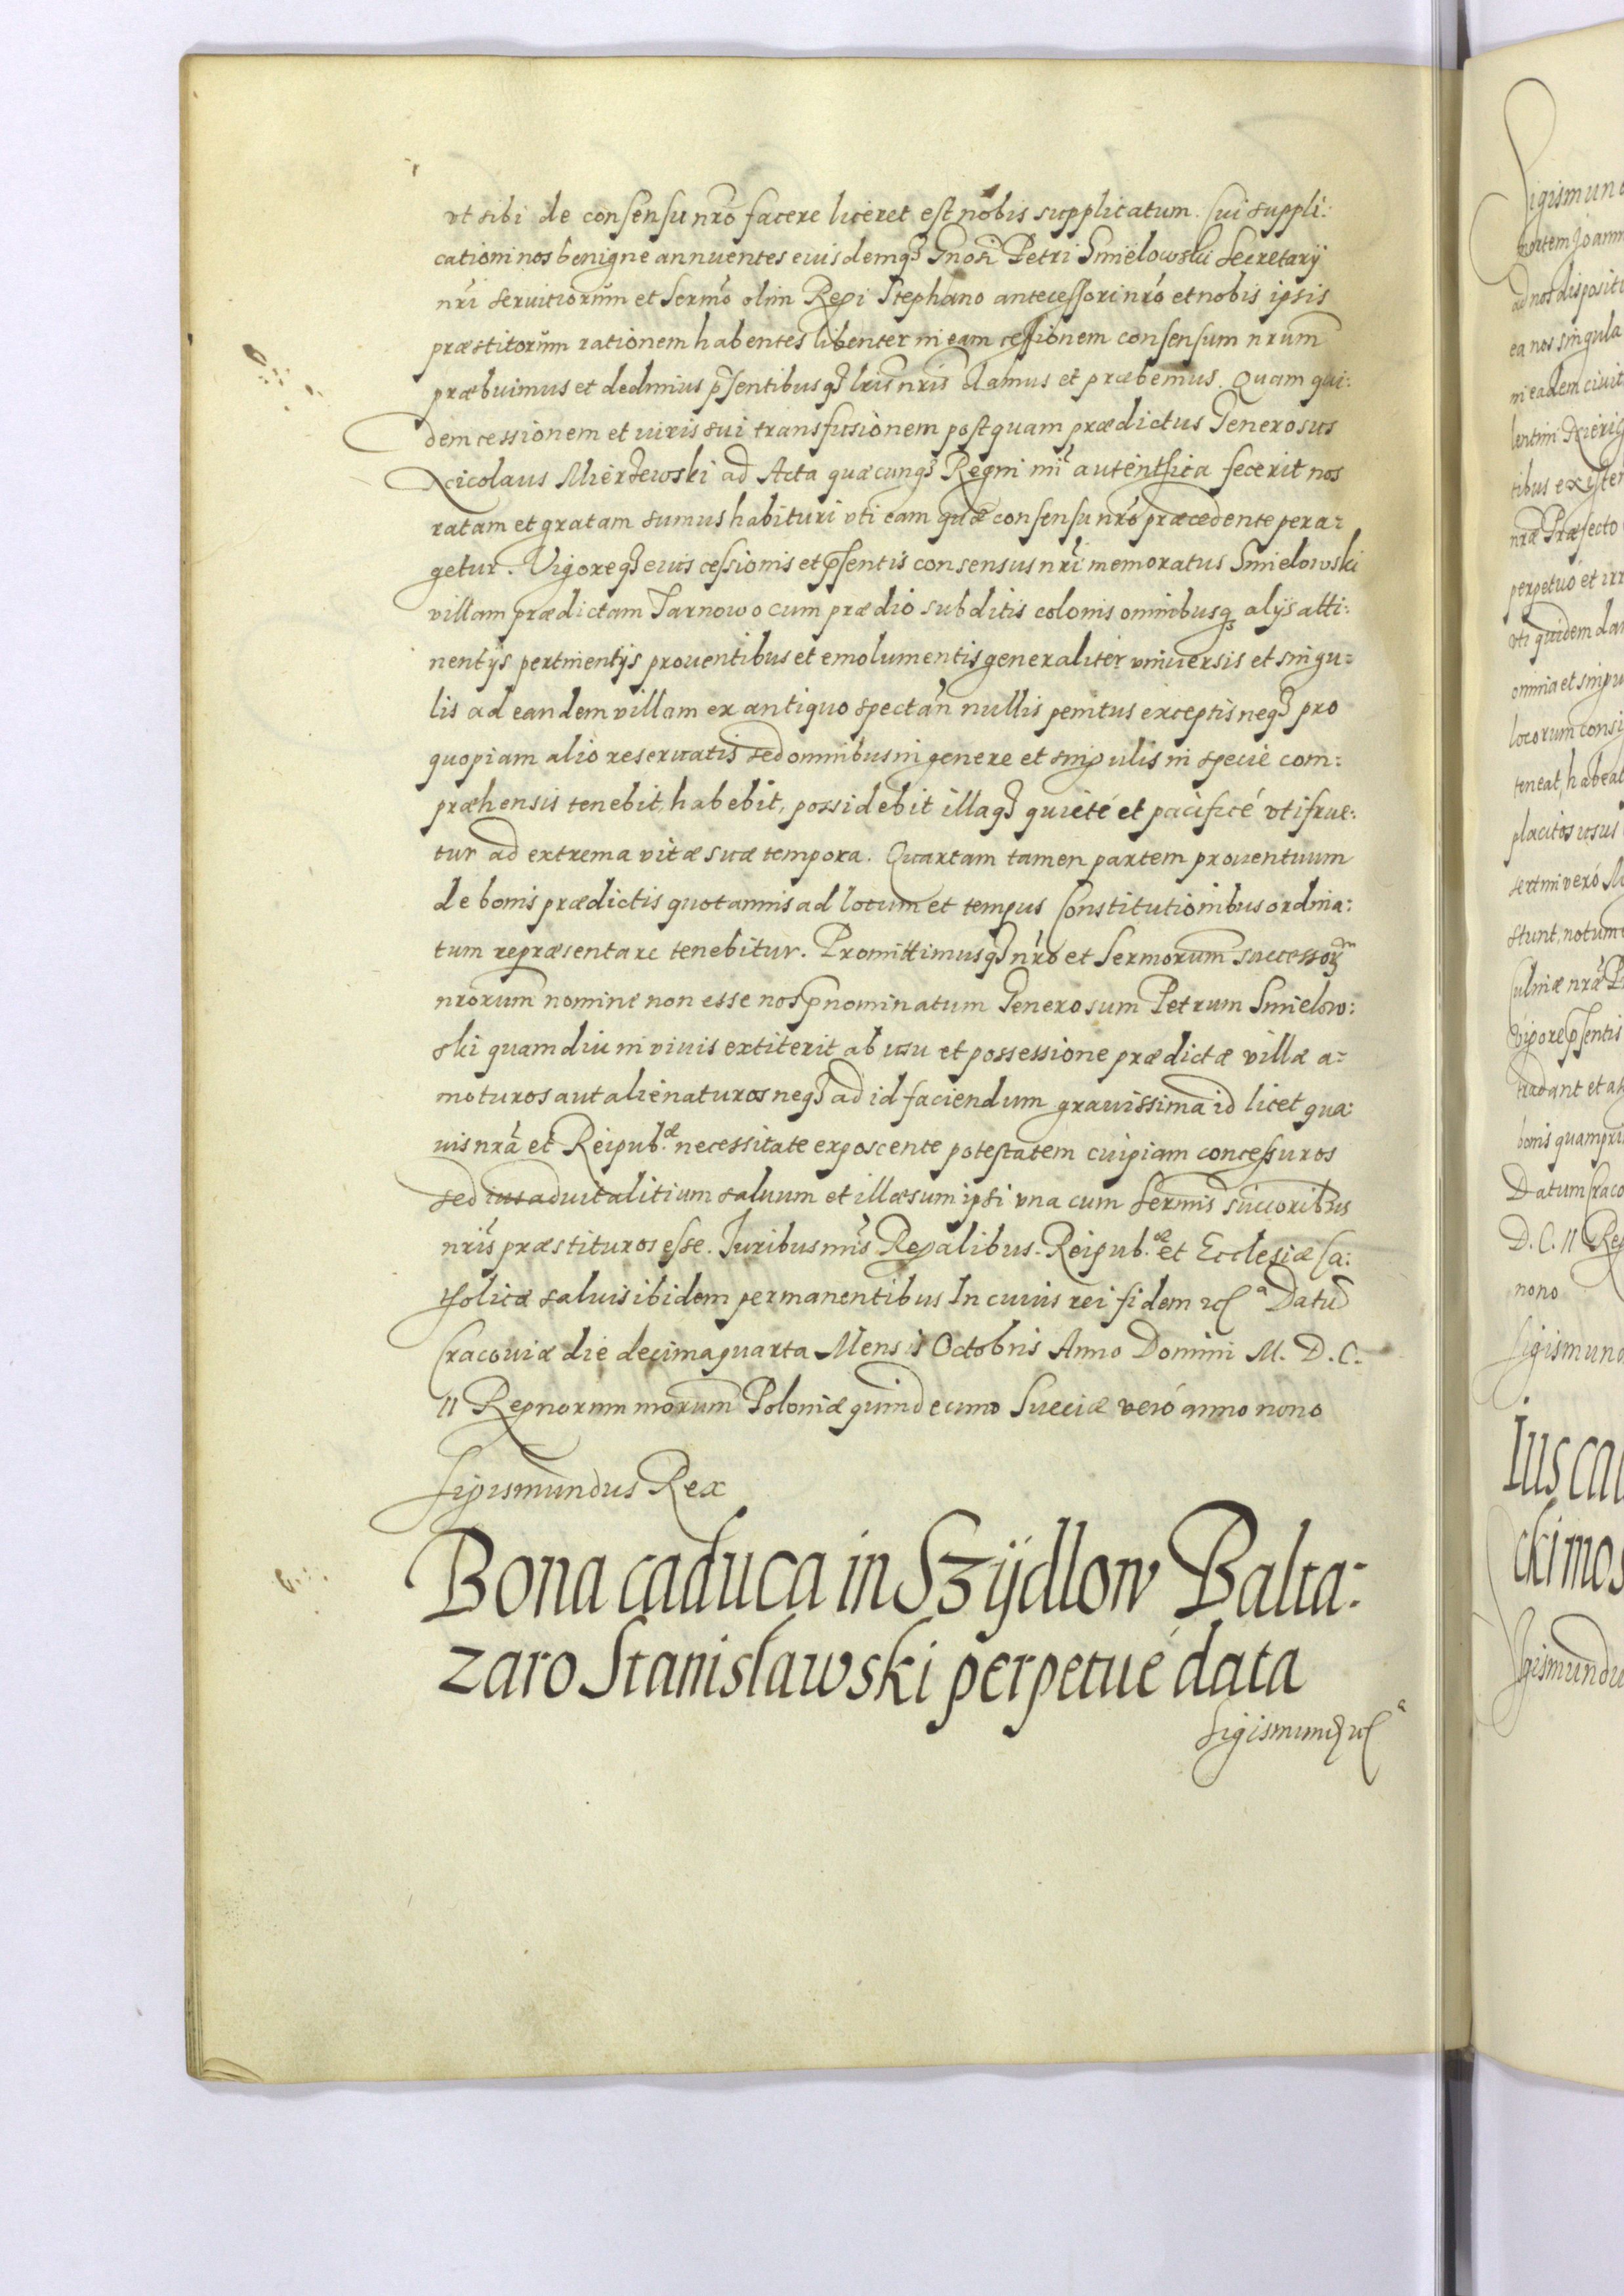 vt sibi de consensu nro facere liceret est nobis supplicatum. Cui suppli:
cationi nos benigne annuentes eiusdemq Gnosi Petri Smielowski Secretarij
nri seruitiorum et Sermo olim Regi Stephano antecessori nro et nobis ipsis
præstitorum rationem habentes libenter in eam cessionem consensum nrum
præbuimus et dedimus psentibusq lris nris damus et præbemus. Quam qui:
dem cessionem et iuris sui transfusionem postquam prædictus Generosus
Nicolaus Mierzewski ad Acta quæcunq Regni nri autenthica fecerit nos
ratam et gratam sumus habituri vti eam quæ consensu nro præcedente pera:
getur. Vigoreq eius cessionis et psentis consensus nri memoratus Smielowski
villam prædictam Tarnowo cum prædio subditis colonis omnibusq alijs atti:
nentijs pertinentijs prouentibus et emolumentis generaliter vniuersis et singu:
lis ad eandem villam ex antiquo spectan nullis penitus exceptis neq pro
quopiam alio reseruatis sed omnibus in genere et singulis in specie com:
præhensis tenebit, habebit, possidebit illaq quieté et pacificé vtifrue:
tur ad extrema vitæ suæ tempora. Quartam tamen partem prouentuum
de bonis prædictis quotannis ad locum et tempus Constitutionibus ordina:
tum repræsentare tenebitur. Promittimusq nro et Sermorum successor
nrorum nomine non esse nos pnominatum Generosum Petrum Smielow:
ski quamdiu in viuis extiterit ab usu et possessione prædictæ villæ a:
moturos aut alienaturos neq ad id faciendum grauissima id licet qua:
uis nra et Reipub.æ necessitate exposcente potestatem cuipiam concessuros
sed ius aduitalitium saluum et illæsum ipsi vna cum Sermis succoribus
nris præstituros esse. Iuribus nris Regalibus. Reipub.æ et Ecclesiæ Ca:
tholicæ saluis ibidem permanentibus In cuius rei fidem etc a Datu
Cracouiæ die decimaquarta Mensis Octobris Anno Domini M. D. C.
II Regnorum nrorum Poloniæ quindecimo Sueciæ veró anno nono
Sigismundus Rex
Bona caduca in Szÿdlow Balta:
zaro Stanisławski perpetué data
Sigismund etc a
Sigismund
mortem Joann
ad nos dispositi
ea nos singula
in eadem ciuit
tibus existen
næ Præfecto
perpetuó et irr
vti quidem da
omnia et singu
locorum consi
teneat, habeat
placitos usus
sertim veró
stunt, notum
vigore psentis
tradant et a
bonis quampri
Datum Craco
D. C. II Reg
nono
Sigismund
Ius cad
cki mos
Sigismundu